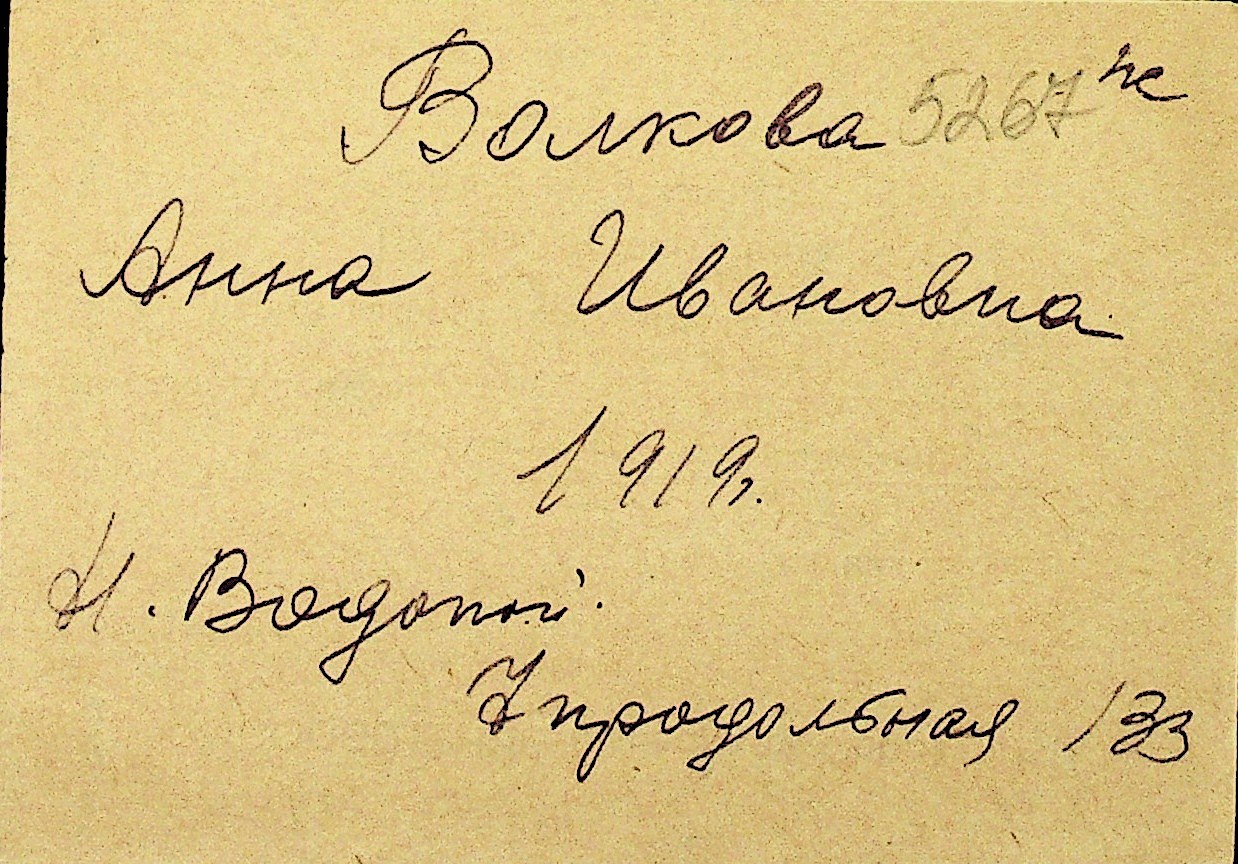 Волкова 5267 ж
Анна Ивановна
1919г.
Н. Водопой.
7 продольная 133